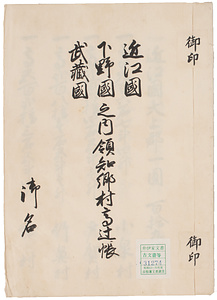 御印
御印
近江國
下野國之内領知郷村高辻帳
武藏國
御名
31274